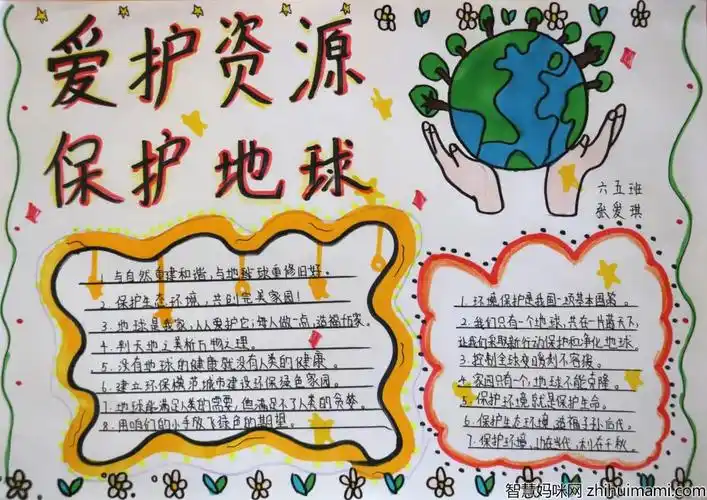 爱护资源
保护地球
六五班
张爱琪
1. 与自然重建和谐,与地球重修旧好。
2. 保护生态环境,共创完美家园!
3. 地球是我家,人人爱护它;每人做一点,造福大家。
4. 判天地之美析万物之理。
5. 没有地球的健康就没有人类的健康。
6. 建立环保模范城市建设环保绿色家园。
7. 地球能满足人类的需要,但满足不了人类的贪婪。
8. 用咱们的小手放飞绿色的期望。
1. 环境保护是我国一项基本国策。
2. 我们只有一个地球,共在一片蓝天下,
让我们采取新行动保护和净化地球。
3. 控制全球变暖刻不容缓。
4. 家园只有一个,地球不能克隆。
5. 保护环境就是保护生命。
6. 保护生态环境,造福子孙后代。
7. 保护环境,功在当代,利在千秋。
智慧妈咪网 zhihuimami.com